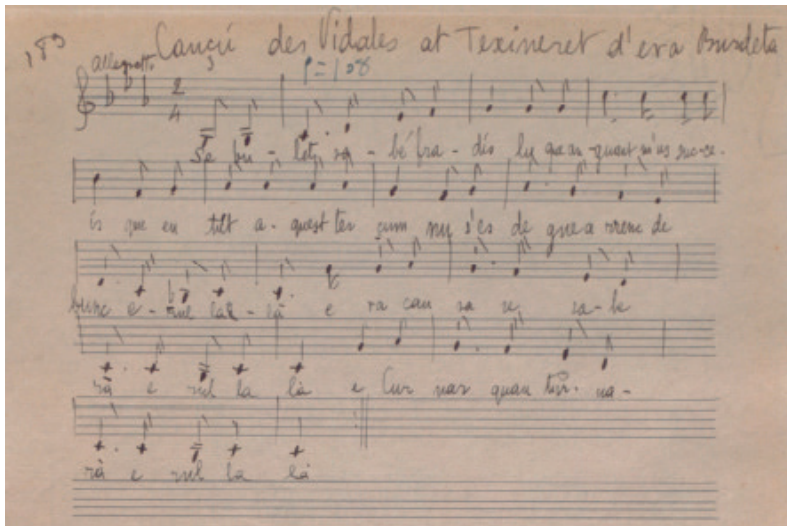 189 Cançú des Vidales at Texineret d'era Burdeta
Allegretto 3 ♩=108
2
4
Se bu - lets sa - bé fra - dis lu que an - quent m'us suc - ce -
is que en tilt a - quest tes cum nu s'es de gue a rrenc de
e - rul la - là e ra can sa se sa - be
rà e rul la là e Cur nar quan tur - na -
rà e rul la là